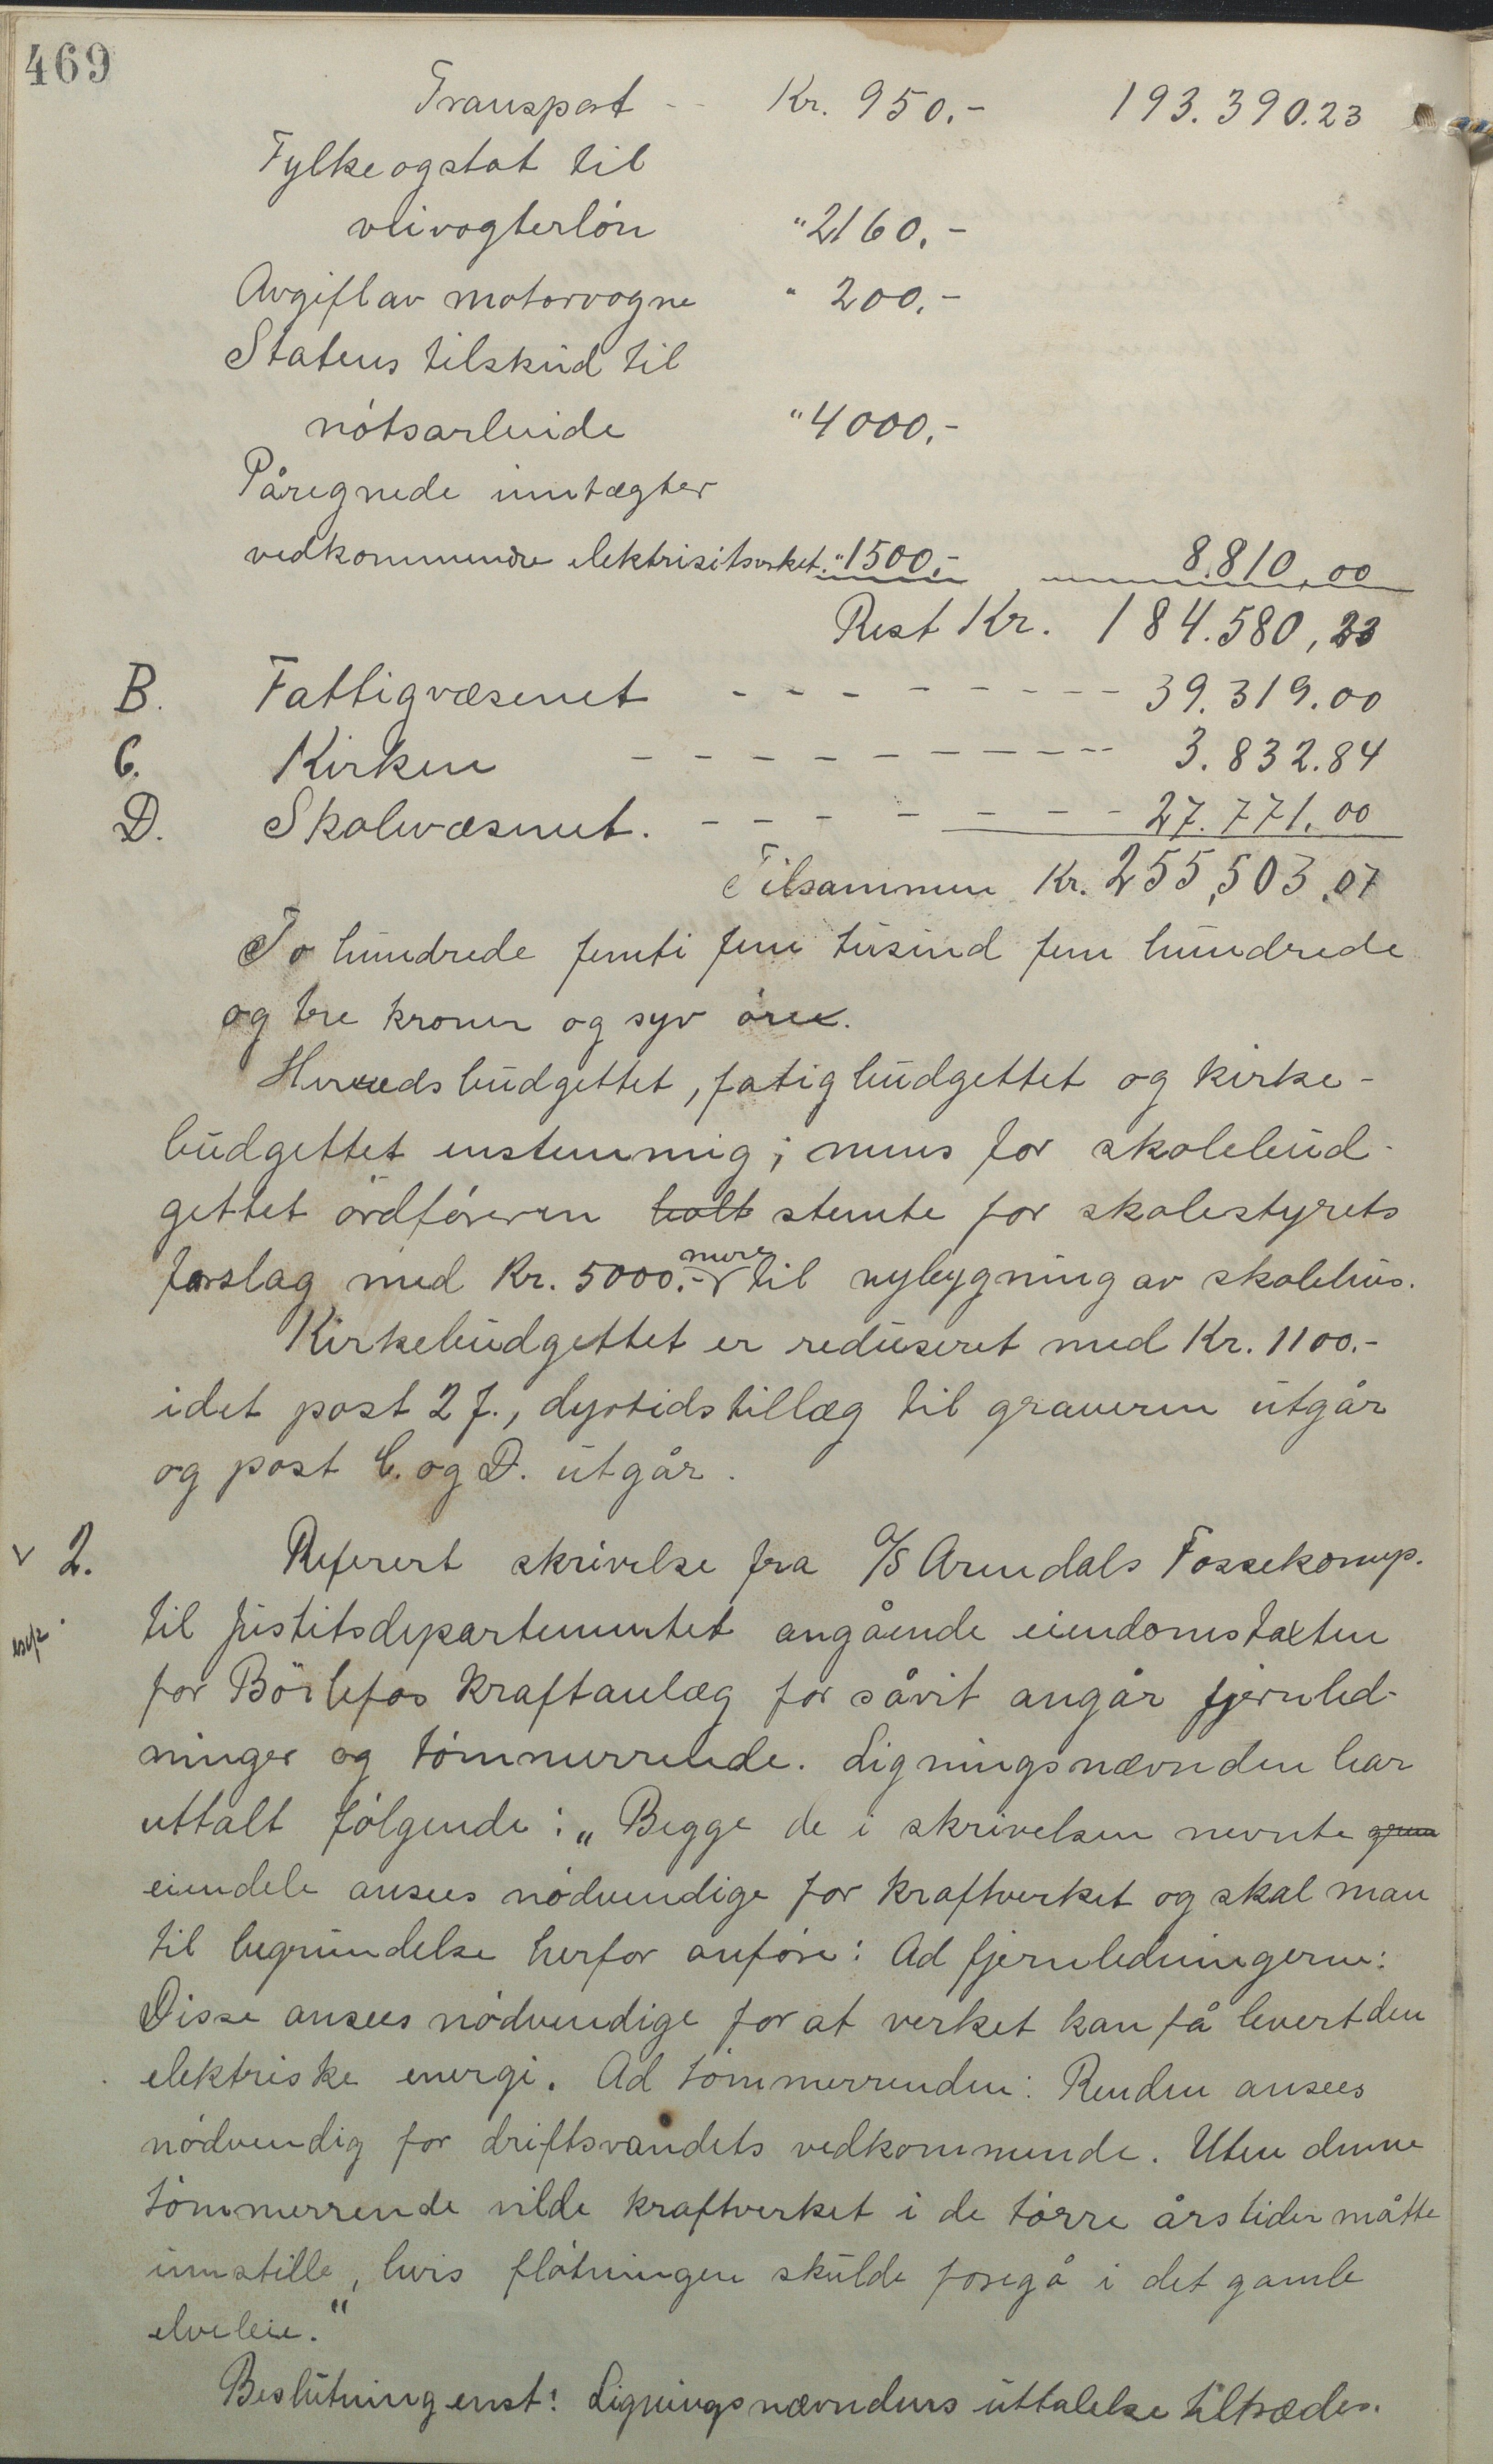 469
Transport - - Kr. 950.- 193.390.23
Fylke og stat til
veivogterlön " 2160.-
Avgift av motorvogne " 200.-
Statens tilskud til
nötsarbeide " 4000.-
Påregnede inntægter
vedkommende elektrisitsverket. " 1500.- 8.810,00
Rest Kr. 184.580,23
B. Fattigvæsenet - - - - - - - - - 39.319.00
C. Kirken - - - - - - - - - - 3.832.84
D. Skolevæsenet. - - - - - - - - 27.771.00
Tilsammen Kr. 255,503.07
To hundrede femti fem tusind fem hundrede
og tre kroner og syv öre.
Herredsbudgettet, fatigbudgettet og kirke-
budgettet enstemmig; mens for skolebud-
gettet ordföreren holt stemte for skolestyrets
forslag med Kr. 5000.- mere til nybygning av skolehus.
Kirkebudgettet er reduseret med Kr. 1100.-
idet post 2 f., dyrtidstillæg til graveren utgår
og post C. og D. utgår.
v 2. Referert skrivelse fra A/S Arendals Fossekomp.
til justitsdepartementet angående eiendomstaxten
for Böilefos kraftanlæg for såvit angår fjernled-
ninger og tömmerrende. Ligningsnævnden har
uttalt fölgende: „Begge de i skrivelsen nevnte
eiendele ansees nödvendige for kraftverket og skal man
til begrundelse herfor anföre: Ad fjernledningerne:
Disse ansees nödvendige for at verket kan få levert den
elektriske energi. Ad tömmerrenden: Renden ansees
nödvendig for driftsvandets vedkommende. Uten denne
tömmerrende vilde kraftverket i de törre årstider måtte
innstille, hvis flötningen skulde foregå i det gamle
elveleie."
Beslutning enst: Ligningsnævndens uttalelse tiltrædes.